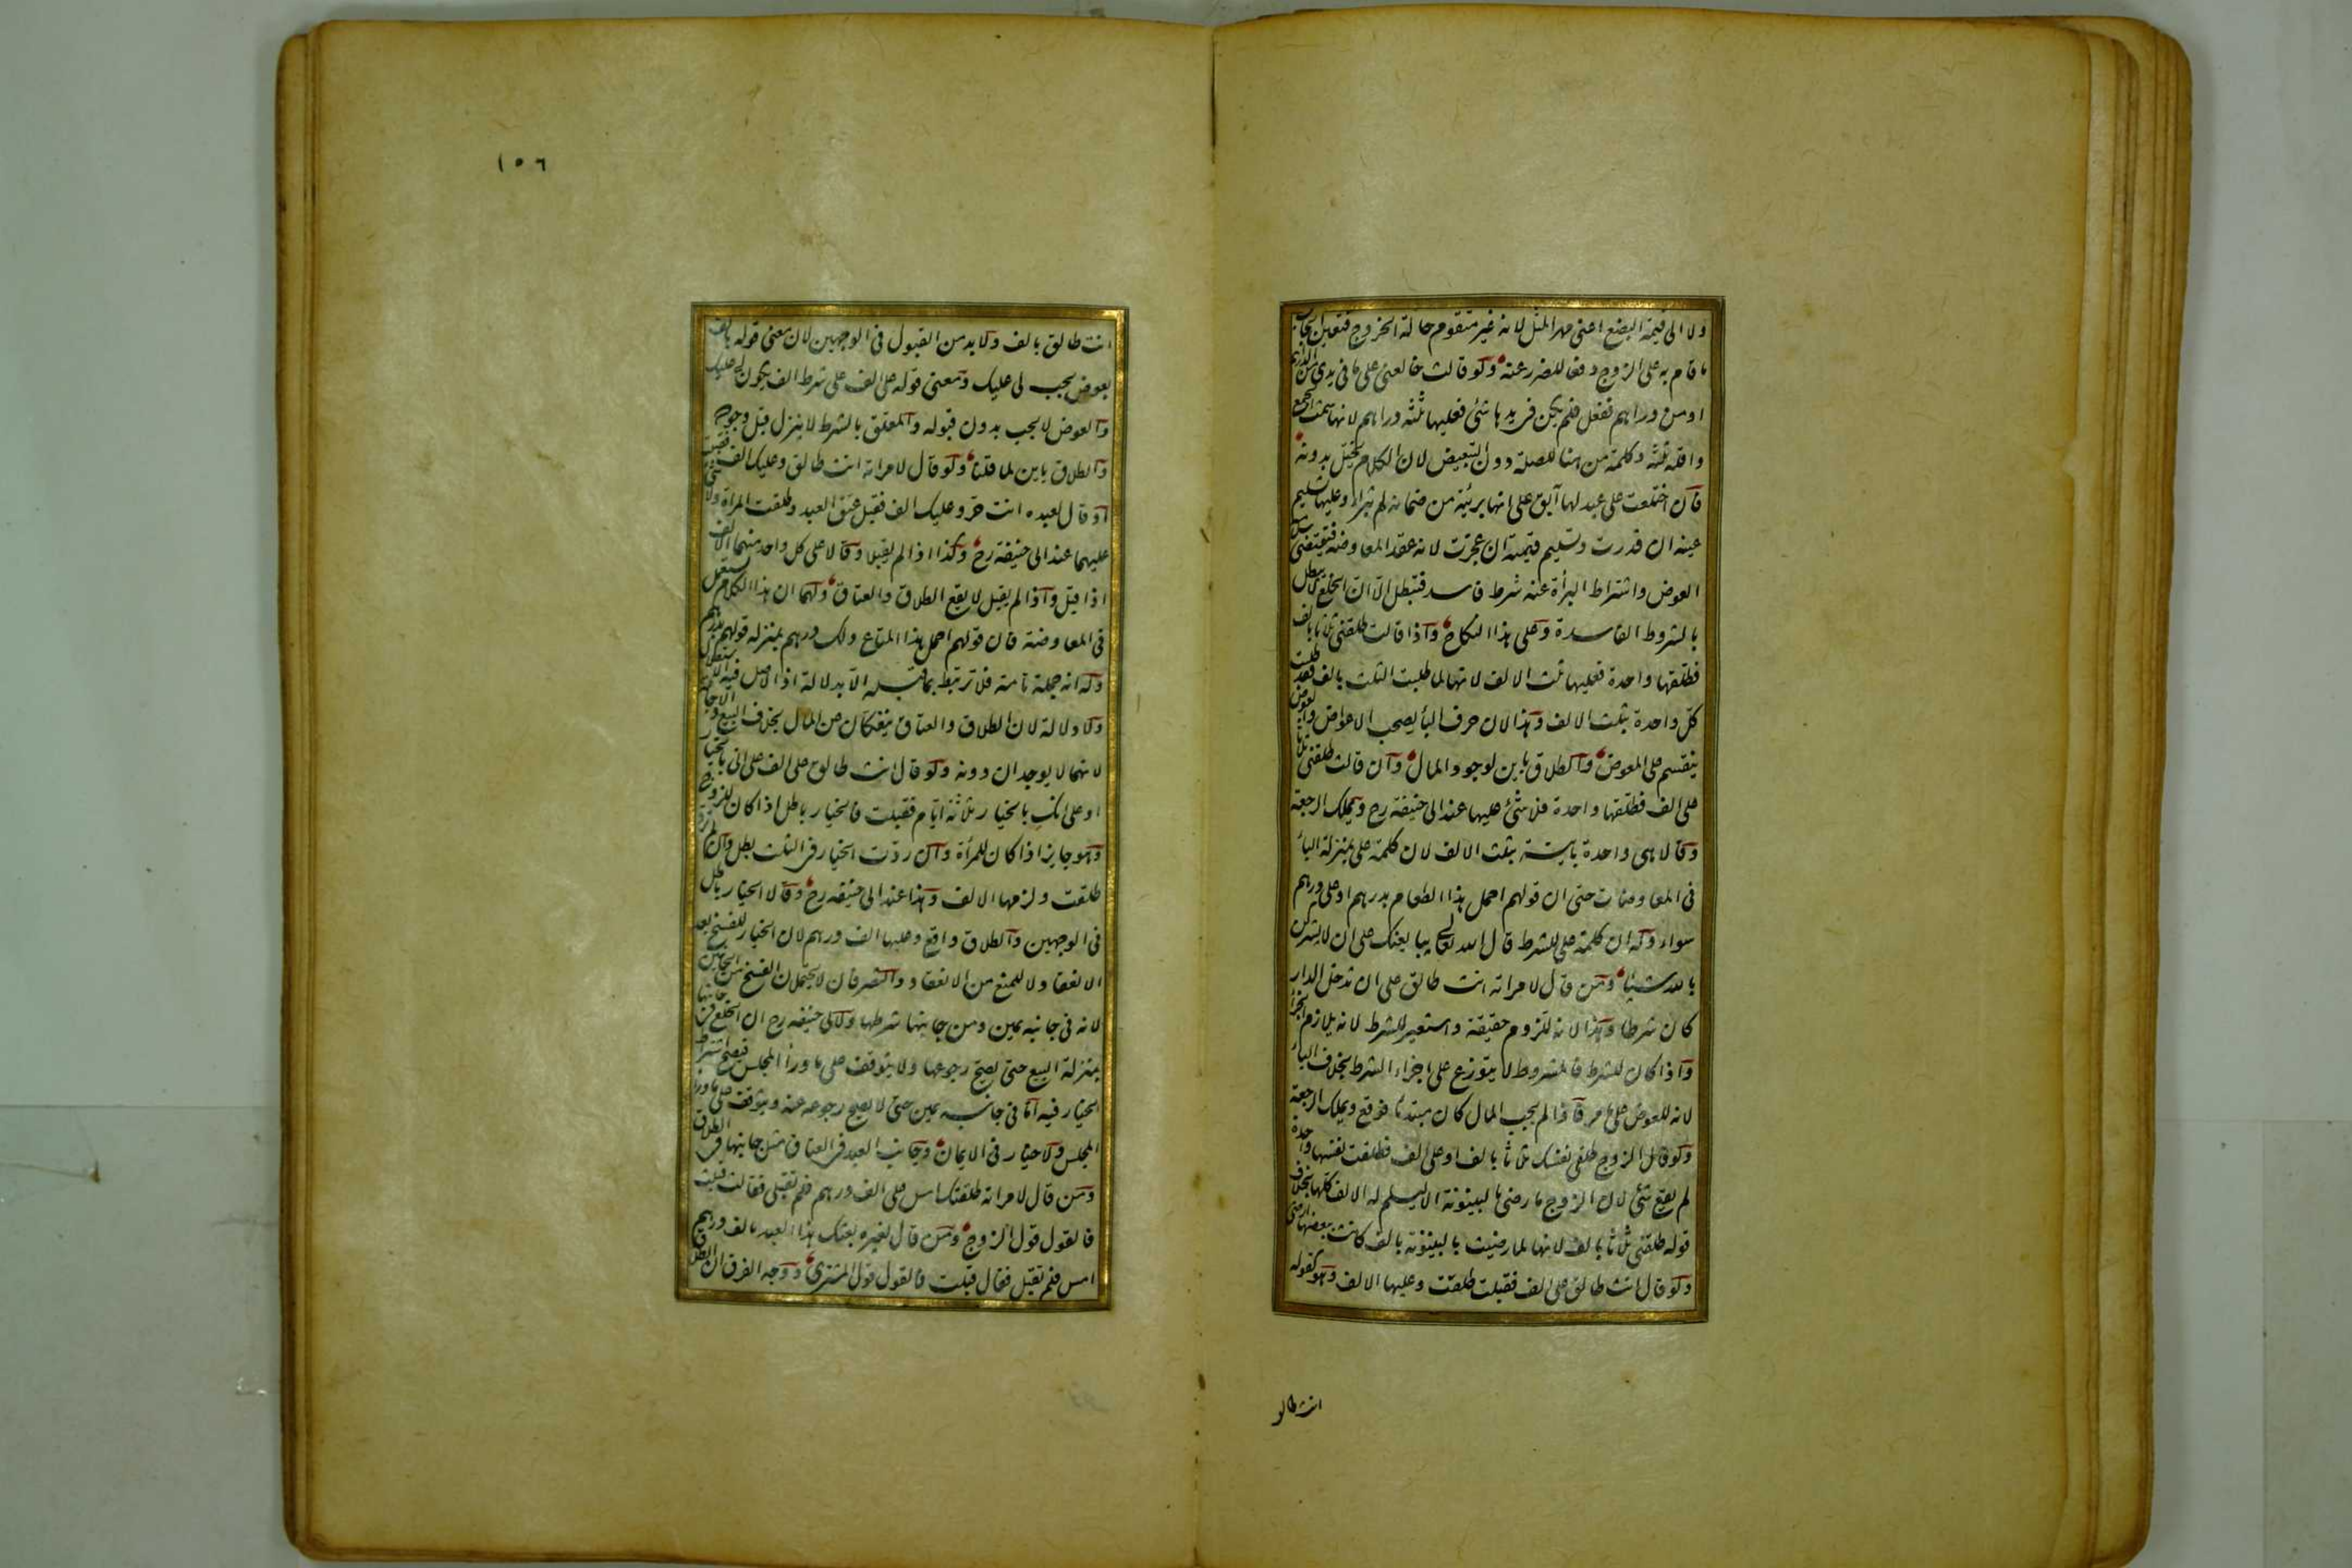 ولا الى قيمة البضع اعنى مهر المثل لانه غير متقوم حالة الخروج فتعين ايجاب
ما قام به على الزوج دفعا للضرر عنه ولو قالت خالعنى على ما فى يدى من الدراهم
او من دراهم ففعل فلم يكن فى يدها شئ فعليها ثلثة دراهم لانها سمت الجمع
واقله ثلثة وكلمة من هنا للصلة دون التبعيض لان الكلام يختل بدونه
فان اختلعت على عبد لها آبق على انها بريئة من ضمانه لم تبرأ وعليها تسليم
عينه ان قدرت وتسليم قيمته ان عجزت لانه عقد المعاوضة فيقتضى سلامة
العوض واشتراط البرأة عنه شرط فاسد فتبطل الا ان الخلع لا يبطل
بالشروط الفاسدة وعلى هذا النكاح واذا قالت طلقنى ثلثا بالف
فطلقها واحدة فعليها ثلث الالف لانها لما طلبت الثلث بالف فقد طلبت
كل واحدة بثلث الالف وهذا لان حرف الباء يصحب الاعواض والعوض
ينقسم على المعوض والطلاق باين لوجود المال وان قالت طلقنى ثلثا
على الف فطلقها واحدة فلا شئ عليها عند ابى حنيفة رح ويملك الرجعة
وقالا هى واحدة باينة بثلث الالف لان كلمة على بمنزلة الباء
فى المعاوضات حتى ان قولهم احمل هذا الطعام بدرهم او على درهم
سواء وله ان كلمة على للشرط قال الله تعالى يبايعنك على ان لا يشركن
بالله شيئا ومن قال لامراته انت طالق على ان تدخلى الدار
كان شرطا وهذا لانه للزوم حقيقة واستعير للشرط لانه يلازم الجزاء
واذا كان للشرط فالمشروط لا يتوزع على اجزاء الشرط بخلاف الباء
لانه للعوض على ما مر فاذا لم يجب المال كان مبتدئا فوقع ويملك الرجعة
ولو قال الزوج طلقى نفسك ثلاثا بالف او على الف فطلقت نفسها واحدة
لم يقع شئ لان الزوج ما رضى بالبينونة الا ليسلم له الالف كلها بخلاف
قوله طلقنى ثلاثا بالف لانها لما رضيت بالبينونة بالف كانت ببعضها ارضى
ولو قال انت طالق على الف فقبلت طلقت وعليها الالف وهو كقوله
انت طالق
١٥٦
انت طالق بالف ولا بد من القبول فى الوجهين لان معنى قوله بالف
بعوض يجب لى عليك ومعنى قوله على الف على شرط الف يكون لى عليك
والعوض لا يجب بدون قبوله والمعلق بالشرط لا ينزل قبل وجوده
والطلاق باين لما قلنا ولو قال لامراته انت طالق وعليك الف فقبلت
او قال لعبده انت حر وعليك الف فقبل عتق العبد وطلقت المرأة ولا شئ
عليهما عند ابى حنيفة رح وكذا اذا لم يقبلا وقالا على كل واحد منهما الالف
اذا قبل واذا لم يقبل لا يقع الطلاق والعتاق ولهما ان هذا الكلام يستعمل
فى المعاوضة فان قولهم احمل هذا المتاع ولك درهم بمنزلة قولهم بدرهم
وله انه جملة تامة فلا ترتبط بما قبله الا بدلالة اذ الاصل فيها الاستقلال
ولا دلالة لان الطلاق والعتاق ينفكان عن المال بخلاف البيع والاجارة
لانهما لا يوجدان دونه ولو قال انت طالق على الف على انى بالخيار
او على انك بالخيار ثلاثة ايام فقبلت فالخيار باطل اذا كان للزوج
وهو جايز اذا كان للمرأة وان ردت الخيار فى الثلث بطل وان لم ترد
طلقت ولزمها الالف وهذا عند ابى حنيفة رح وقالا الخيار باطل
فى الوجهين والطلاق واقع وعليها الف درهم لان الخيار للفسخ بعد
الانعقاد لا للمنع من الانعقاد والتصرفان لا يحتملان الفسخ من الجانبين
لانه فى جانبه يمين ومن جانبها شرطها ولابى حنيفة رح ان الخلع من جانبها
بمنزلة البيع حتى يصح رجوعها ولا يتوقف على ما وراء المجلس فيصح اشتراط
الخيار فيه اما فى جانبه يمين حتى لا يصح رجوعه عنه ويتوقف على ما وراء
المجلس ولا خيار فى الايمان وجانب العبد فى العتاق مثل جانبها فى الطلاق
ومن قال لامراته طلقتك امس على الف درهم فلم تقبلى فقالت قبلت
فالقول قول الزوج ومن قال لغيره بعتك هذا العبد بالف درهم
امس فلم تقبل فقال قبلت فالقول قول المشترى ووجه الفرق ان الطلاق